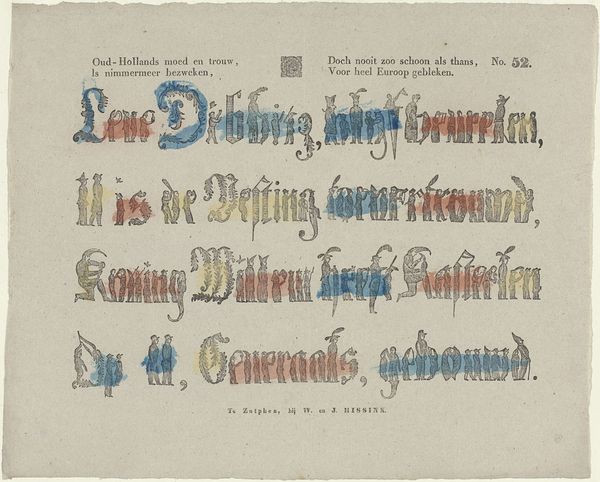 Oud-Hollands moed en trouw,
Is nimmermeer bezweken,
Doch nooit zoo schoon als thans,
Voor heel Euroop gebleken.
No. 52.
Leve Dibbitz,
U is de Vesting toevertrouwd,
Koning Willem heeft Kasteelen
Op U, Generaals, gebouwd.
Te Zutphen, bij W. en J. HISSINK.